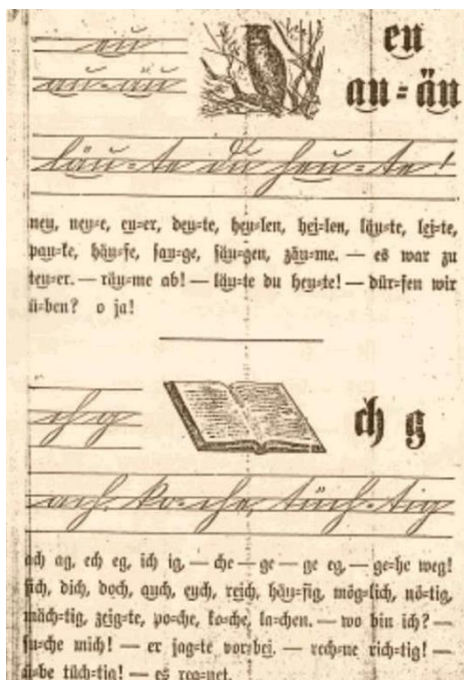 eu
au-äu
eu
au-äu
läu-te du heu-te!
neu, neu-e, eu-er, deu-te, heu-len, hei-len, läu-te, lei-te,
pau-ke, häu-se, sau-ge, säu-gen, zäu-me. — es war zu
teu-er. — räu-me ab! — läu-te du heu-te! — dür-fen wir
ü-ben? o ja!
ch g
ch g
ach, ko-che, tüch-tig
ach ag, ech eg, ich ig, — che — ge — ge eg, — ge-he weg!
sich, dich, doch, auch, euch, reich, häu-fig, mög-lich, nö-tig,
mäch-tig, zeig-te, po-che, ko-che, la-chen. — wo bin ich? —
su-che mich! — er jag-te vor-bei. — rech-ne rich-tig! —
ü-be tüch-tig! — es reg-net.